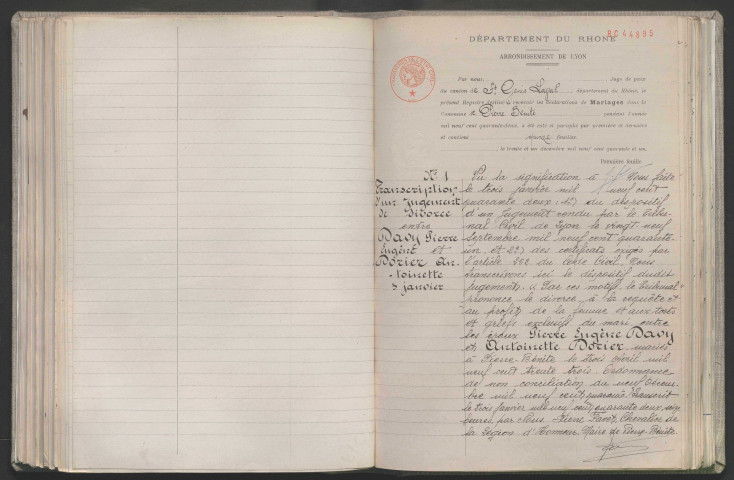 DÉPARTEMENT DU RHÔNE
ARRONDISSEMENT DE LYON
Par nous, Juge de paix
du canton de St Genis Laval département du Rhône, le
présent Registre destiné à recevoir les Déclarations de Mariages dans la
Commune de Pierre-Bénite pendant l'année
mil neuf cent quarante-deux, a été coté et paraphé par première et dernière
et contient feuillets.
le trente et un décembre mil neuf cent quarante et un.
Première feuille
No 1
Transcription
d'un Jugement
de Divorce
entre
Davy Pierre
Eugène et
Dorier An-
toinette
3 janvier
Vu la signification à Nous faite
le trois janvier mil neuf cent
quarante deux: 1º) du dispositif
d'un Jugement rendu par le Tribu-
nal Civil de Lyon le vingt-neuf
Septembre mil neuf cent quarante-
un et 2º) des certificats exigés par
l'article 252 du Code Civil. Nous
transcrivons ici le dispositif dudit
Jugement: « Par ces motifs le Tribunal
prononce le divorce à la requête et
au profit de la femme et aux torts
et griefs exclusifs du mari entre
les époux Pierre Eugène Davy
et Antoinette Dorier mariés
à Pierre-Bénite le trois avril mil
neuf cent trente trois. Ordonnance
de non conciliation du neuf Décem-
bre mil neuf cent quarante. Transcrit
le trois janvier mil neuf cent quarante deux,
heures, par Nous Pierre Chevalier de
la Légion d'Honneur Maire de Pierre-Bénite